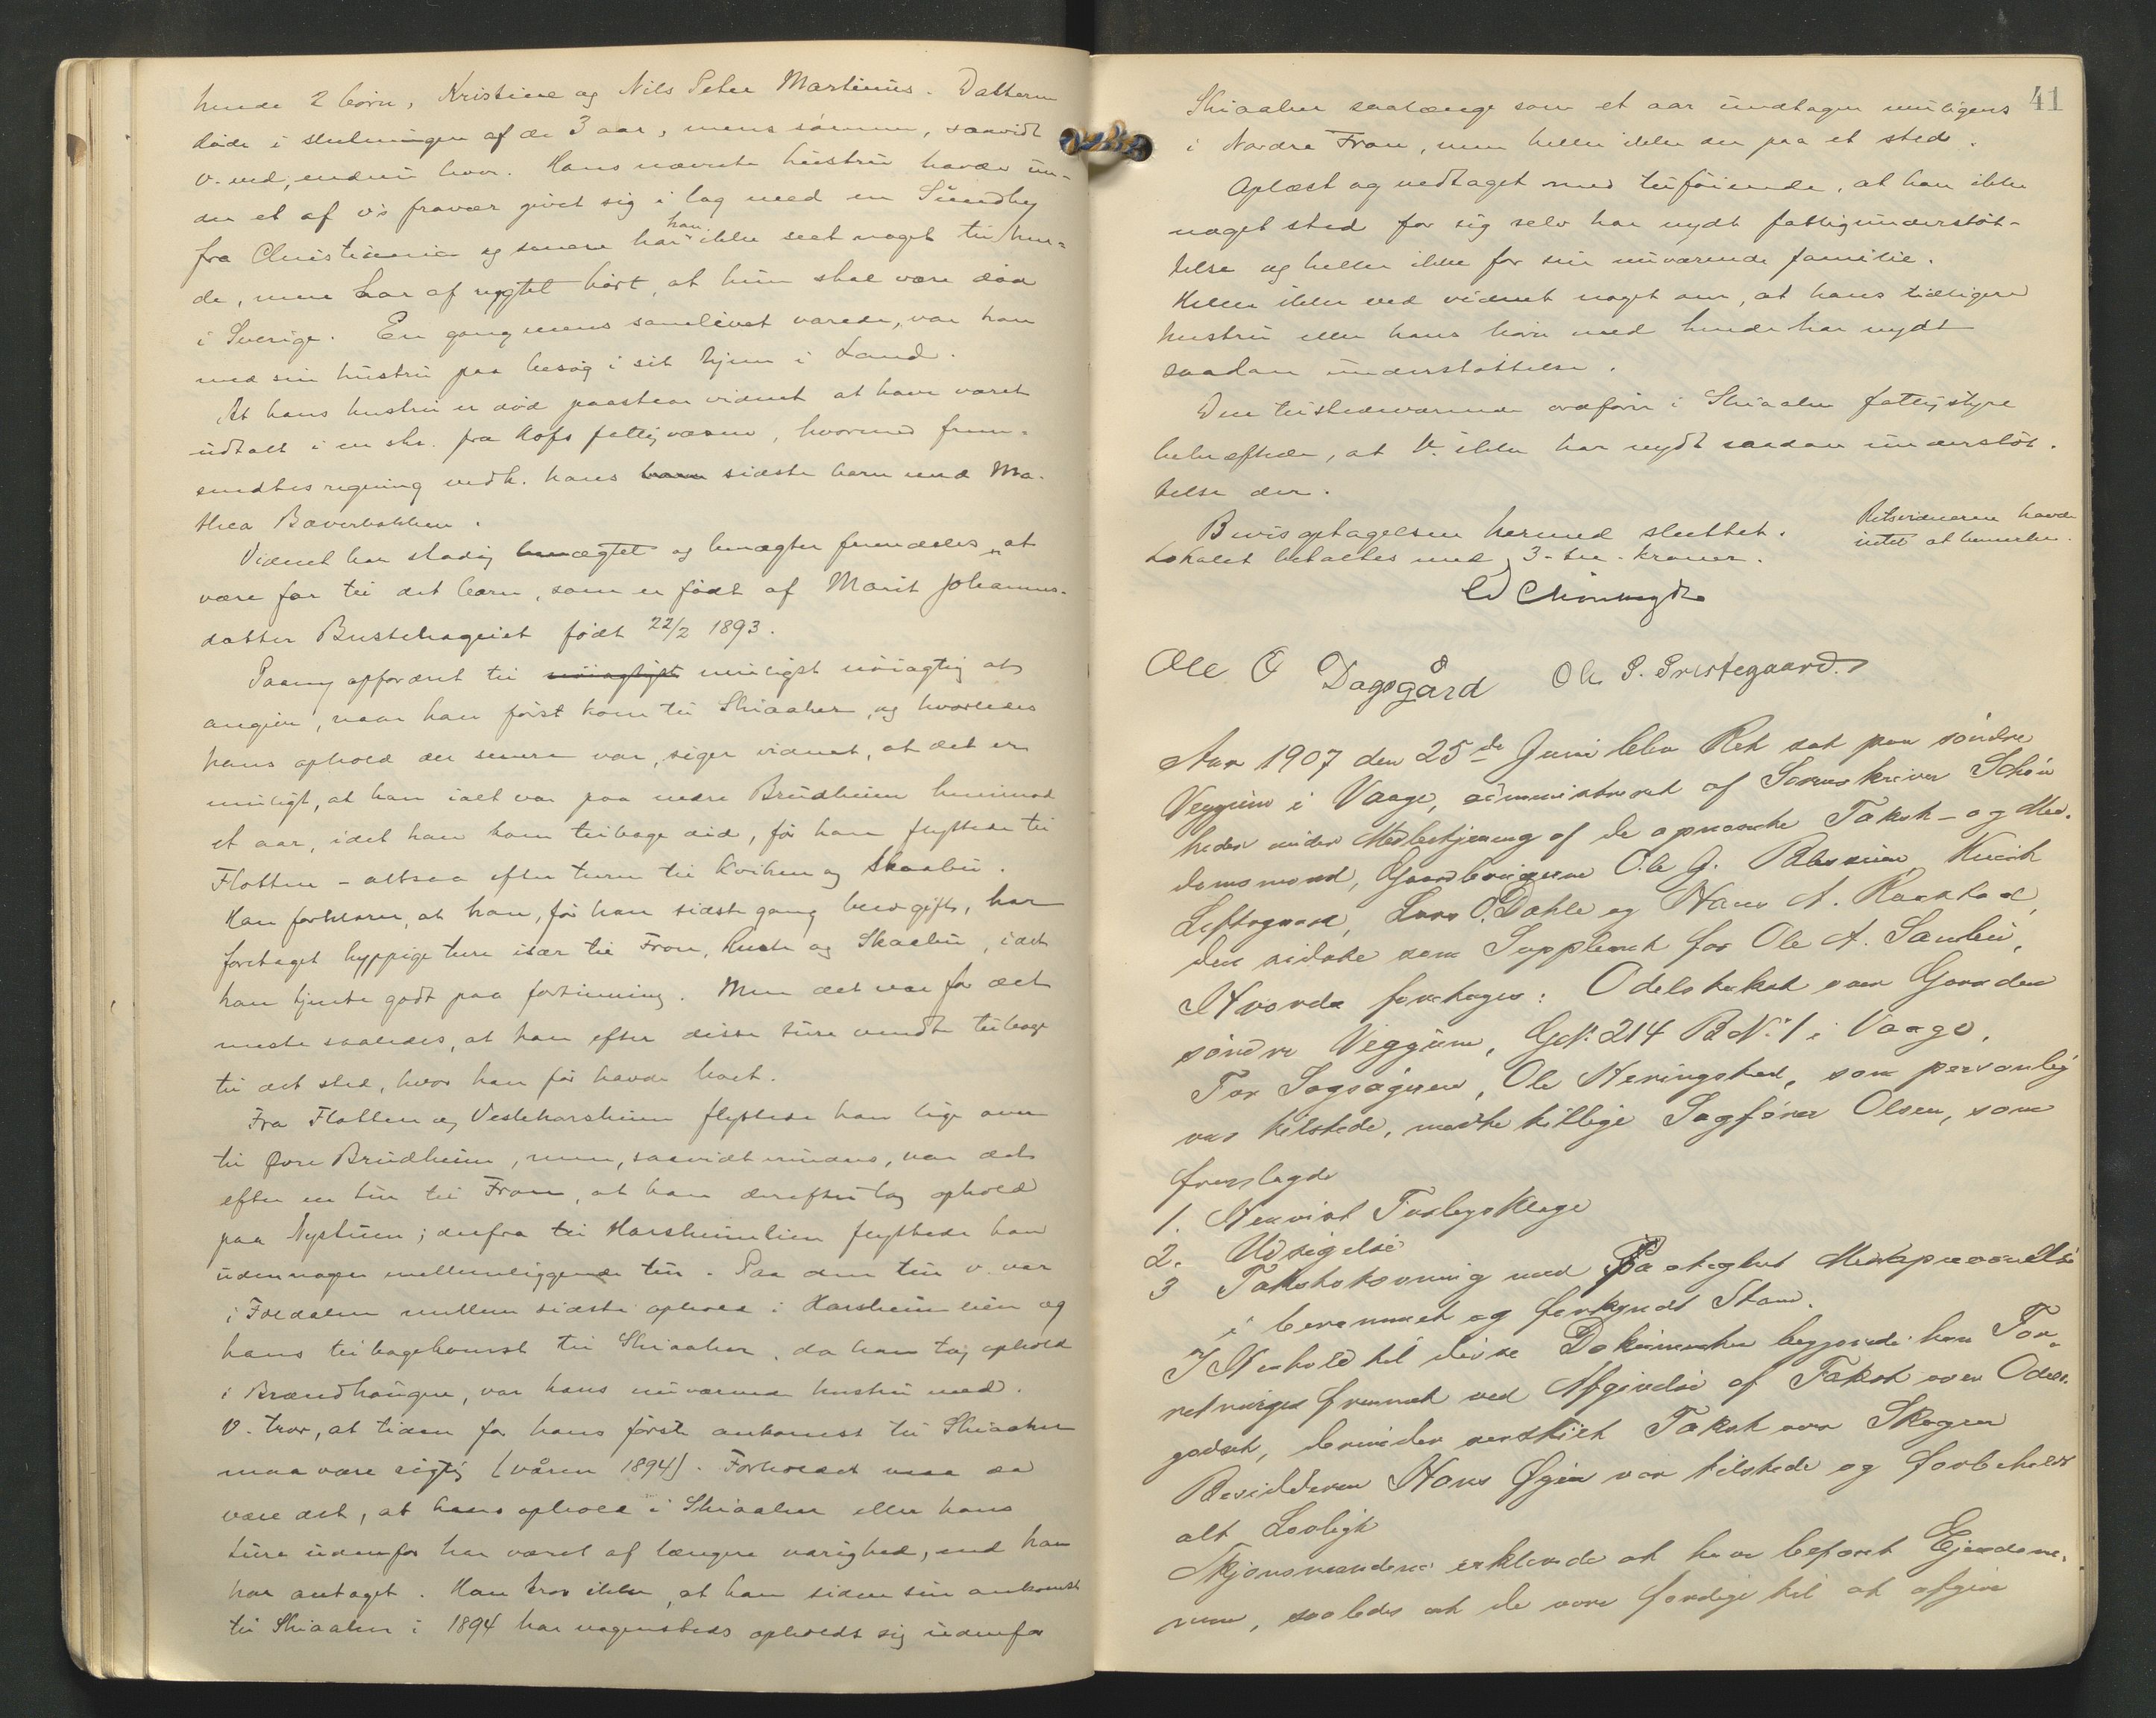 hende 2 børn, Kristine og Nils Peter Martinius. Datteren
døde i slutningen af de 3 aar, mens sønnen, saavidt
v. ved, endnu lever. Hans nævnte hustru havde un-
der et af v's fravær givet sig i lag med en Sundby
fra Christiania og senere har han ikke seet noget til hen-
de, men har af rygtet hørt, at hun skal være død
i Sverige. En gang mens samlivet varede, var han
med sin hustru paa besøg i sit hjem i Land.
At hans hustru er død paastaar vidnet at have været
udtalt i en skr. fra Hofs fattigvæsen, hvormed frem-
sendtes regning vedk. hans barn sidste barn med Ma-
thea Bæverbakken.
Vidnet har stadig benægtet og benægter fremdeles at
være far til det barn, som er født af Marit Johannes-
datter Bustehageiet født 22/2 1893.
Paany opfordret til nøiagtigst muligst nøiagtig at
angive, naar han først kom til Skiaaker, og hvorledes
hans ophold der senere var, siger vidnet, at det er
muligt, at han ialt var paa nedre Brudheim henimod
et aar, idet han kom tilbage did, før han flyttede til
Flotten - altsaa efter turen til Kvikne og Skaabu.
Han forklarer, at han, før han sidste gang blev gift, har
foretaget hyppige ture især til Fron, Kvikne og Skaabu, idet
han tjente godt paa fortinning. Men det var for det
meste saaledes, at han efter disse ture vendte tilbage
til det sted, hvor han før havde boet.
Fra Flotten og Vesleharsheim flyttede han lige over
til øvre Brudheim, men, saavidt mindes, var det
efter en tur til Fron, at han derefter tog ophold
paa Nystuen; derfra til Harsheimlien flyttede han
uden nogen mellemliggende tur. Paa den tur v. var
i Foldalen mellem sidste ophold i Harsheimlien og
hans tilbagekomst til Skiaaker, da han tog ophold
i Brændhaugen, var hans nuværende hustru med.
V. tror, at tiden for hans første ankomst til Skiaaker
maa være rigtig (våren 1894). Forholdet maa da
være det, at hans ophold i Skiaaker eller hans
ture udenfor har været af længere varighed, end han
har antaget. Han tror ikke, at han siden sin ankomst
til Skiaaker i 1894 har nogensteds opholdt sig udenfor
41
Skiaaker saalænge som et aar undtagen muligens
i Nordre Fron, men heller ikke der paa et sted.
Oplæst og vedtaget med tilføiende, at han ikke
noget sted for sig selv har nydt fattigunderstøt-
telse og heller ikke for sin nuværende familie.
Heller ikke ved vidnet noget om, at hans tidligere
hustru eller hans børn med hende har nydt
saadan understøttelse.
Den tilstedeværende ordfører i Skiaaker fattigstyre
bekræftede, at V. ikke har nydt saadan understøt-
telse der.
Bevisoptagelsen hermed sluttet.
Retsvidnerne havde
intet at bemerke.
Lokalet betaltes med 3 - tre - kroner.
Ole O Dagsgård Ole P. Prestegaard.
Aar 1907 den 25de Juni blev Ret sat paa søndre
Veggum i Vaage, administreret af Sorenskriver Schøn
heder under Medbetjening af de opnævnte Takst- og Med-
domsmænd, Gaardbrugerne Ole G. Blessum, Knut
Leftsgaard, Lars O. Dahle og Hans A. Raastad,
den sidste som Supplerant for Ole A. Sambu,
Hvorda foretages: Odelstakst over Gaarden
søndre Veggum, GNr. 214 BNr. 1 i Vaage.
For Sagsøgeren, Ole Heringstad, som personlig
var tilstede, mødte tillige Sagfører Olsen, som
fremlagde
1. Henvist Forligsklage
2. Udsigelse
3 Takststevning med Paategnet Medopnævnelse
i beramme t og forkyndt Stand.
I Henhold til disse Dokumenter begjærede han For-
retningen fremmet ved Afgivelse af Takst over Odels-
godset, derunder særskilt Takst over Skogen
Besidderen Hans Øyen var tilstede og forbeholdt
alt Lovligt
Skjønsmændene erklærede at have befaret Ejendom-
men, saaledes at de vare færdige til at afgive